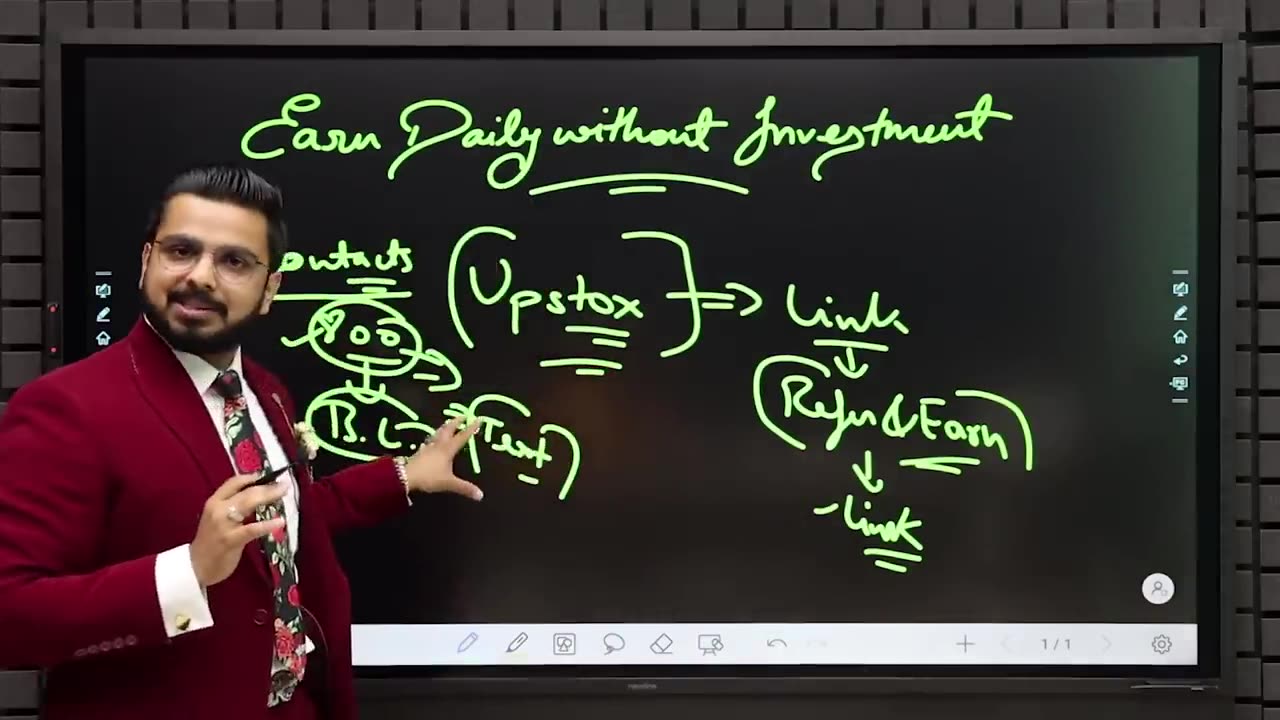 Earn Daily without Investment
ontacts
(Upstox) => Link
800
Refer & Earn
B.L.
(Text)
Link
1/1